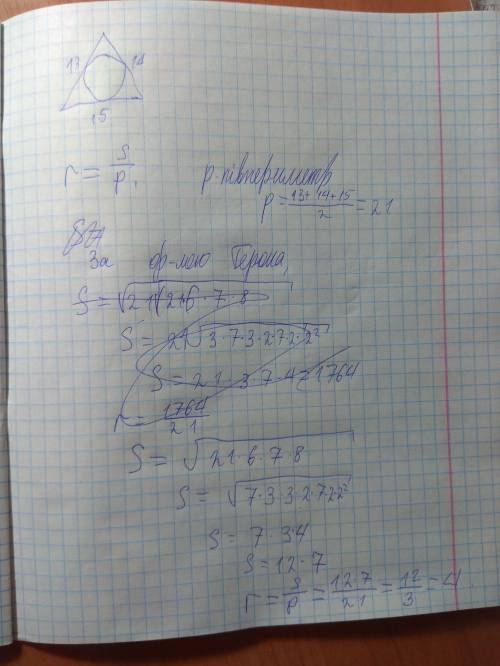 13 14
15
r = S/p, p - півпериметр
p = (13 + 14 + 15)/2 = 21
За ф-лою Герона,
S = √(21·6·7·8)
S = 21√(3·7·3·2·7·2·2²)
S = 21·3·7·4 = 1764
r = 1764/21
S = √(21·6·7·8)
S = √(7·3·3·2·7·2·2²)
S = 7·3·4
S = 12·7
r = S/p = (12·7)/21 = 12/3 = 4